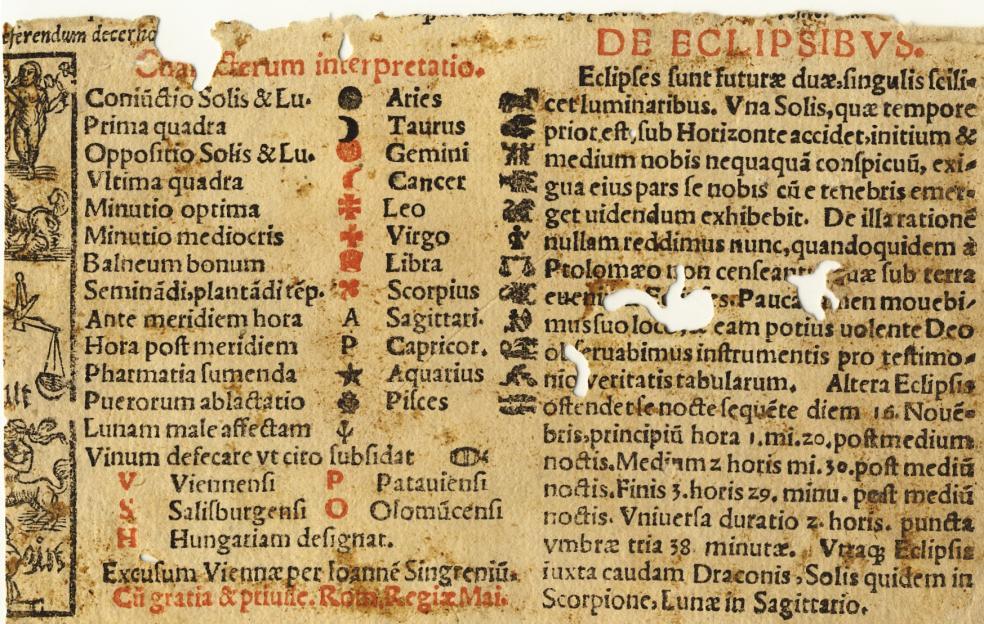 eferendum decerno
Characterum interpretatio.
Coniūctio Solis & Lu. Aries
Prima quadra Taurus
Oppositio Solis & Lu. Gemini
Vltima quadra Cancer
Minutio optima Leo
Minutio mediocris Virgo
Balneum bonum Libra
Seminādi,plantādi tēp. Scorpius
Ante meridiem hora A Sagittari.
Hora post meridiem P Capricor.
Pharmatia sumenda Aquarius
Puerorum ablactatio Pisces
Lunam male affectam
Vinum defecare vt cito subsidat
V Viennensi P Patauiensi
S Salisburgensi O Olomūcensi
H Hungariam designat.
Excusum Viennæ per Ioannē Singreniū.
Cū gratia & priuile. Rom. Regiæ Mai.
DE ECLIPSIBVS.
Eclipses sunt futuræ duæ,singulis scili-
cet luminaribus. Vna Solis,quæ tempore
prior est,sub Horizonte accidet,initium &
medium nobis nequaquā conspicuū, exi-
gua eius pars se nobis cū e tenebris emer-
get uidendum exhibebit. De illa rationē
nullam reddimus nunc,quandoquidem à
Ptolomæo non censeant quæ sub terra
eueni es. Pauca men mouebi-
mus suo loco, eam potius uolente Deo
obseruabimus instrumentis pro testimo-
nio veritatis tabularum. Altera Eclipsis
ostendet se nocte sequēte diem 16. Nouē-
bris,principiū hora 1.mi.20.post medium
noctis. Medium 2 horis mi. 30.post mediū
noctis. Finis 3.horis 29. minu. post mediū
noctis. Vniuersa duratio 2. horis. puncta
vmbræ tria 38 minutæ. Vtraq; Eclipsis
iuxta caudam Draconis,Solis quidem in
Scorpione, Lunæ in Sagittario.